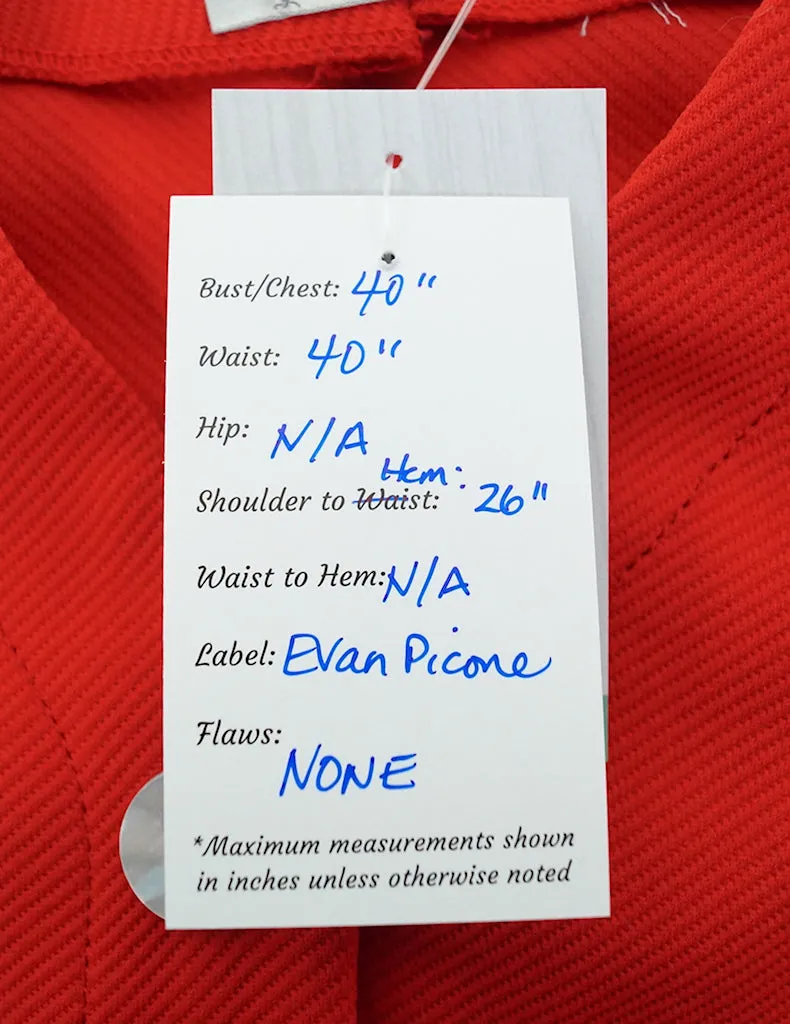 Bust/Chest: 40"
Waist: 40"
Hip: N/A
Hem:
Shoulder to Waist: 26"
Waist to Hem: N/A
Label: Evan Picone
Flaws:
NONE
*Maximum measurements shown
in inches unless otherwise noted